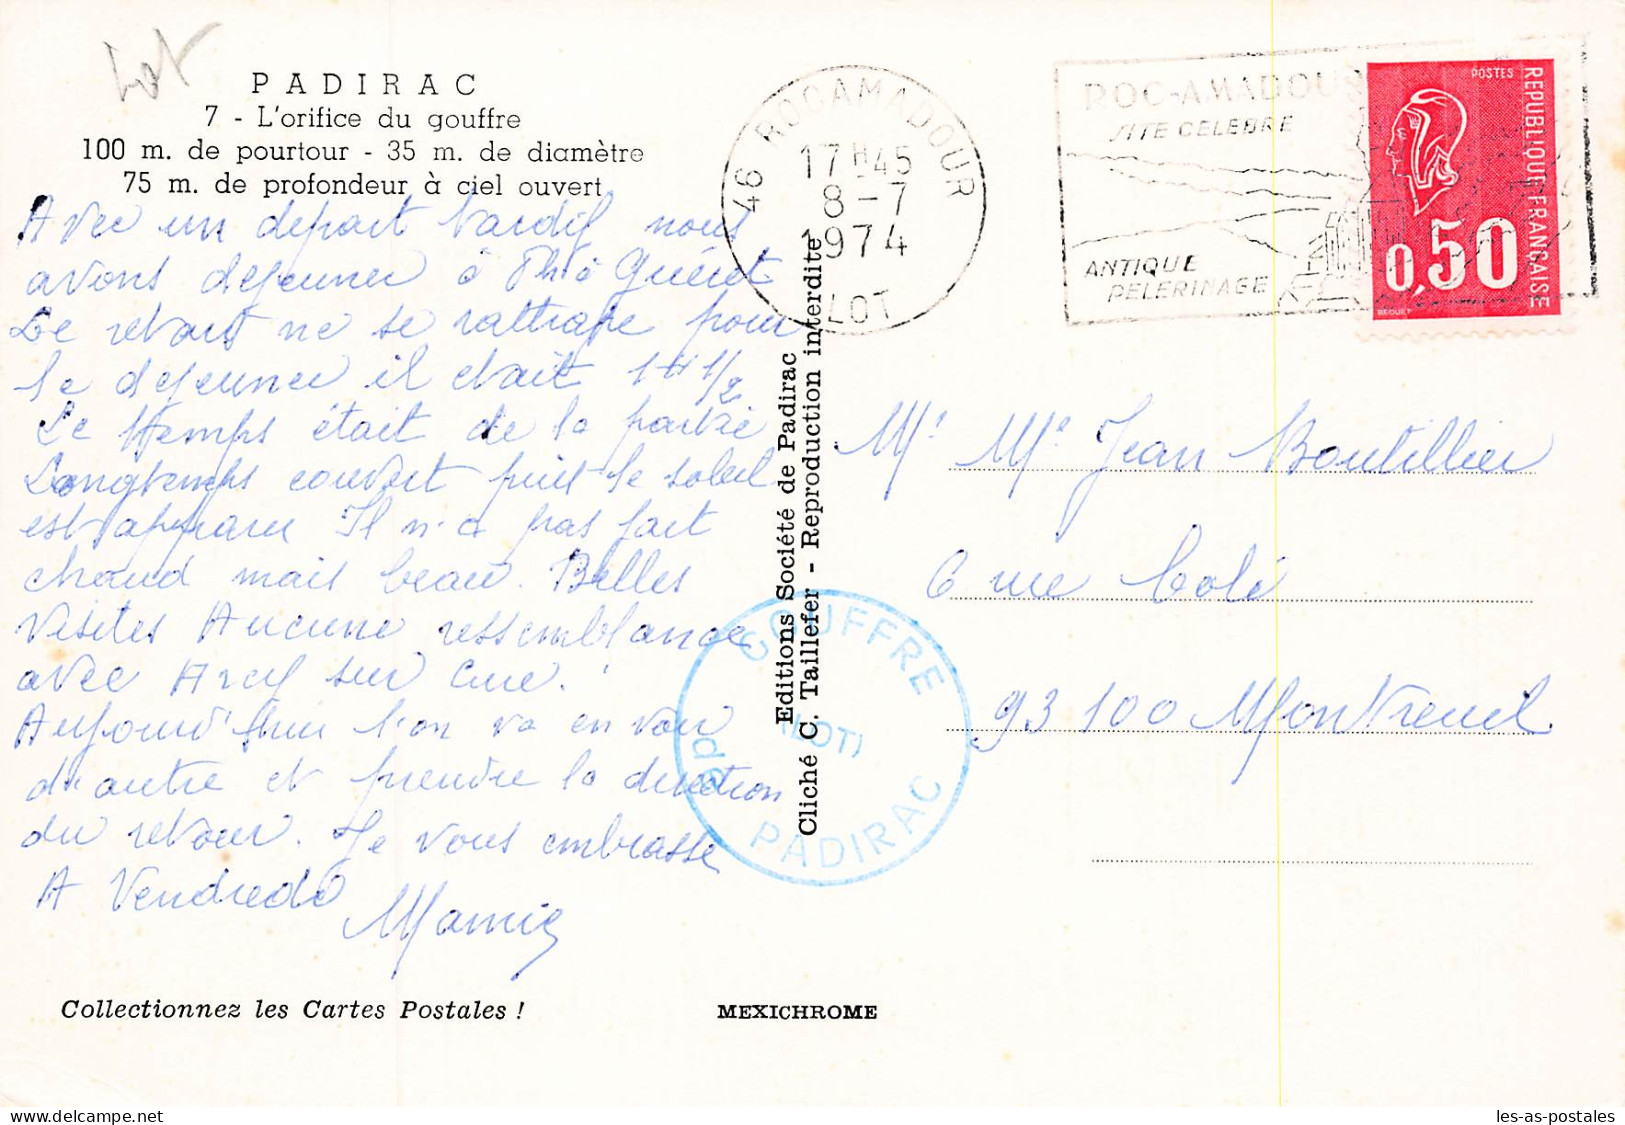 Lot
PADIRAC
7 - L'orifice du gouffre
100 m. de pourtour - 35 m. de diamètre
75 m. de profondeur à ciel ouvert
Avec un depart tardif nous
avons dejeuner à Guéret
Le retard ne se rattrape pour
le dejeuner il etait 1H 1/2
Le temps était de la partie
Longtemps couvert puis le soleil
est apparu Il n'a pas fait
chaud mais beau. Belles
visites Aucune ressemblance
avec Arcy sur Cure.!
Aujourd'hui l'on va en voir
autre et prendre la direction
du retour. Je vous embrasse
A Vendredi
Mamie
Collectionnez les Cartes Postales !
MEXICHROME
Editions Société de Padirac
Cliché C. Taillefer - Reproduction interdite
GOUFFRE
de
(LOT)
PADIRAC
46 ROCAMADOUR
17H45
8-7
1974
LOT
ROC-AMADOUR
SITE CELEBRE
ANTIQUE
PELERINAGE
POSTES
REPUBLIQUE FRANÇAISE
0,50
BEQUET
Mr Me Jean Boutillier
6 rue
93100 Montreuil
les-as-postales
delcampe.net